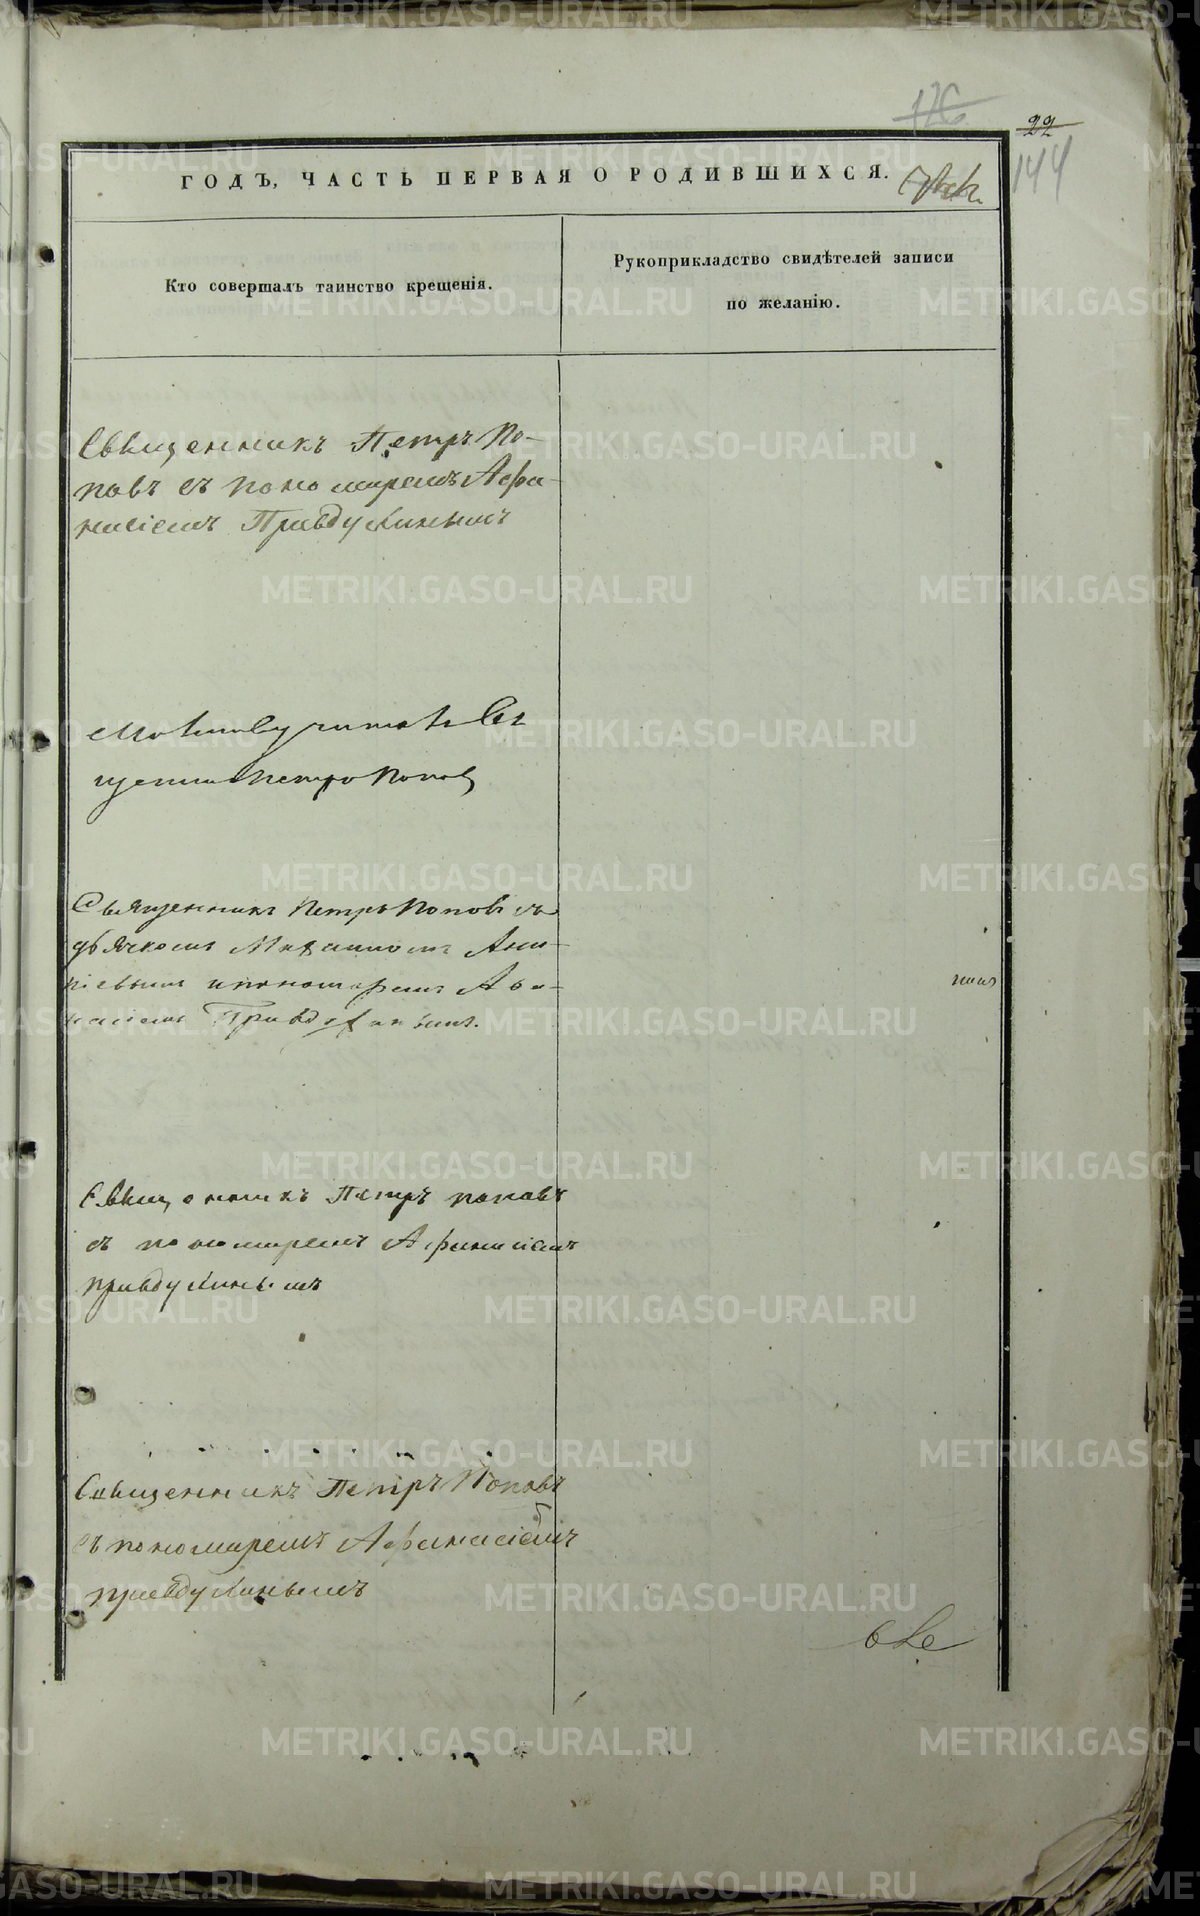 126
22
144
ГОДЪ, ЧАСТЬ ПЕРВАЯ О РОДИВШИХСЯ.
Кто совершалъ таинство крещенія.
Рукоприкладство свидѣтелей записи
по желанію.
Священникъ Петръ По-
повъ съ пономаремъ Афа-
насіемъ Правдухинымъ
Молитву читалъ Свя
щенник Петръ Попов
Священникъ Петръ Поповъ съ
дьячкомъ
и пономаремъ Афа-
насіемъ Правдухинымъ.
Священникъ Петръ Поповъ
съ пономаремъ Афанасіемъ
Правдухинымъ
Священникъ Петръ Поповъ
съ пономаремъ Афанасіемъ
Правдухинымъ
METRIKI.GASO-URAL.RU